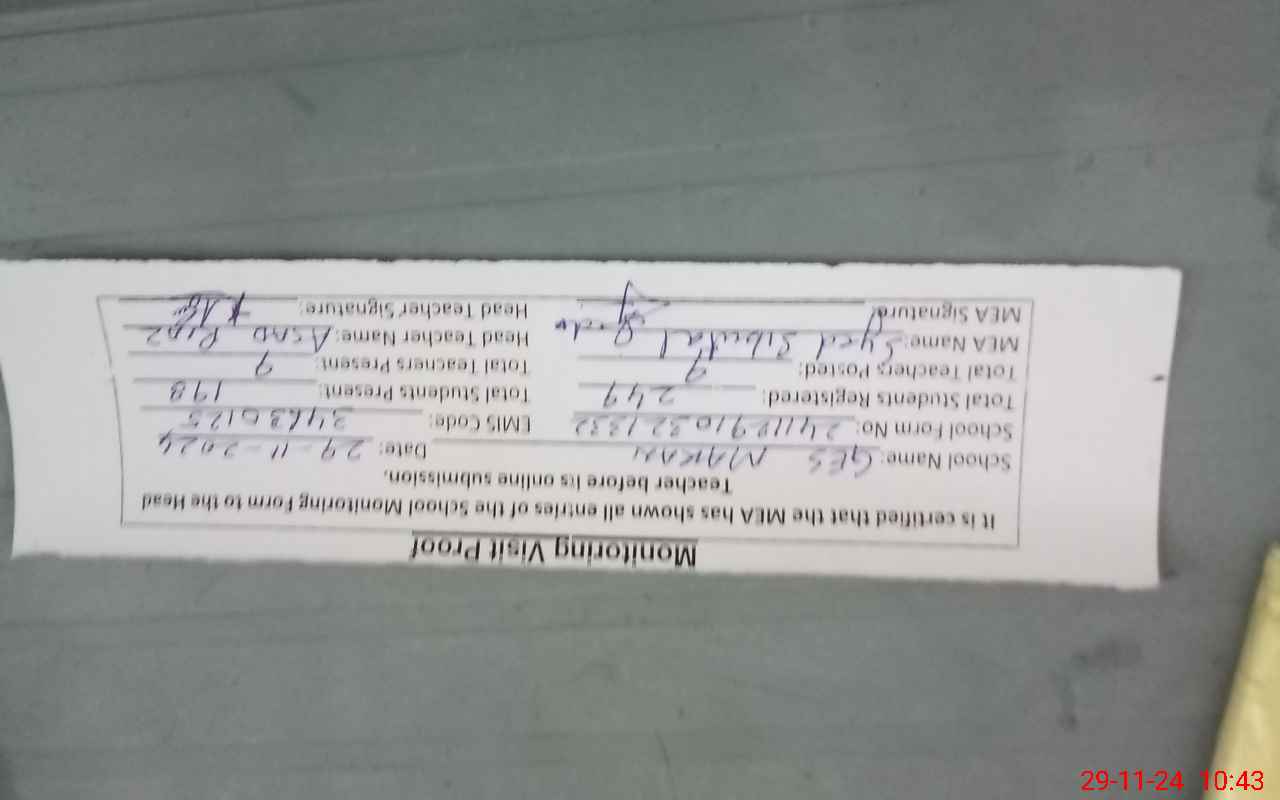 Monitoring Visit Proof
It is certified that the MEA has shown all entries of the School Monitoring Form to the Head
Teacher before its online submission.
School Name: GES MAKAN Date: 29-11-2024
School Form No: EMIS Code: 34630125
Total Students Registered: 249 Total Students Present: 198
Total Teachers Posted: 9 Total Teachers Present: 9
MEA Name: Syed Head Teacher Name: ASAD
MEA Signature: Head Teacher Signature:
29-11-24 10:43